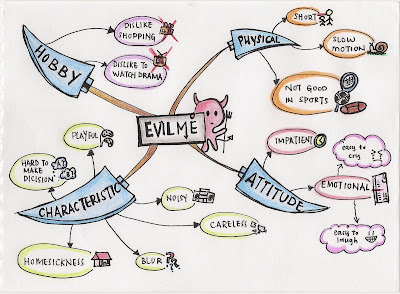 DISLIKE
SHOPPING
HOBBY
DISLIKE TO
WATCH DRAMA
PHYSICAL
SHORT
SLOW
MOTION
NOT GOOD
IN SPORTS
EVIL ME
PLAYFUL
HARD TO
MAKE
DICISION
CHARACTERISTIC
NOISY
CARELESS
HOMESICKNESS
BLUR
IMPATIENT
ATTITUDE
EMOTIONAL
easy to
cry
easy to
laugh